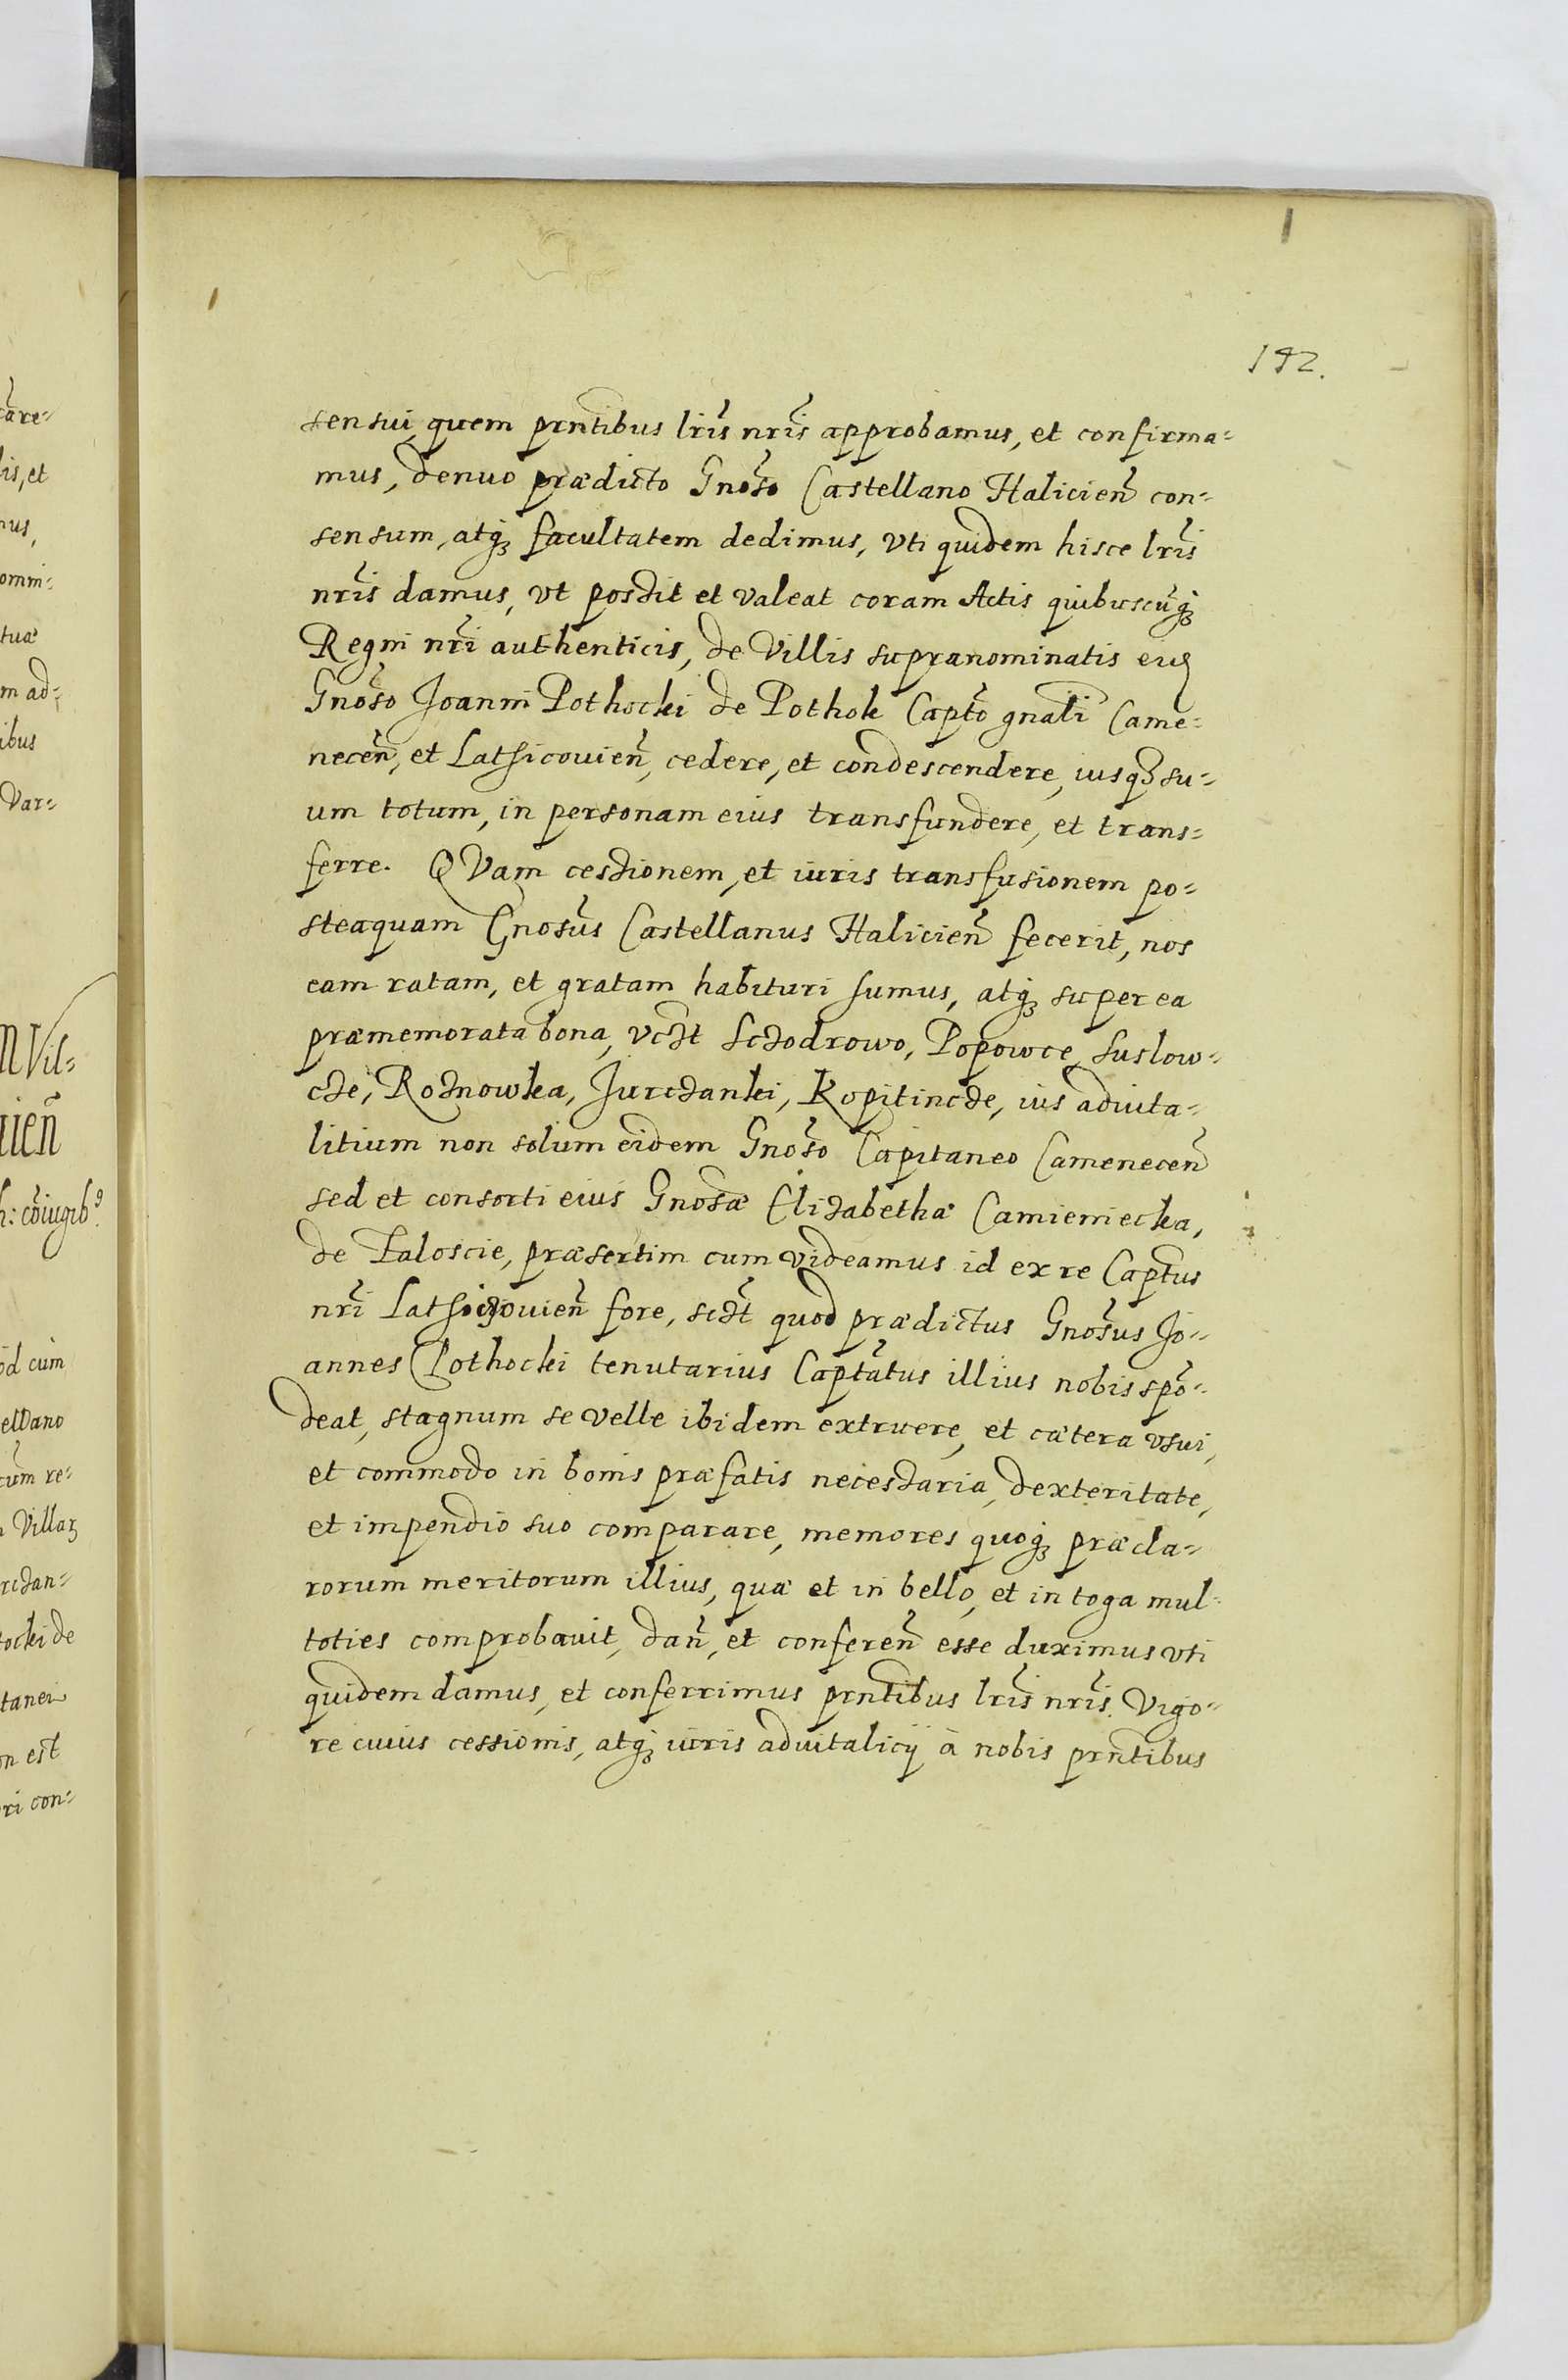 192.
sensui, quem prntibus lris nris approbamus, et confirma-
mus, denuo prædicto Gnoso Castellano Halicien con-
sensum, atq3 facultatem dedimus, vti quidem hisce lris
nris damus, vt possit et valeat coram Actis quibuscuq3
Regni nri authenticis, de Villis supranominatis eid
Gnoso Joanni Pothocki de Pothok Capto gnali Came-
necen, et Lathicouien, cedere, et condescendere, iusq3 su-
um totum, in personam eius transfundere, et trans-
ferre. QVam cessionem, et iuris transfusionem po-
steaquam Gnosus Castellanus Halicien fecerit, nos
eam ratam, et gratam habituri sumus, atq3 super ea
præmemorata bona, vczt Sczodrowo, Popowce, Suslow-
cze, Roznowka, Jurczanki, Kopitincze, ius aduita-
litium non solum eidem Gnoso Capitaneo Camenecen
sed et consorti eius Gnosæ Elizabethæ Camieniecka,
de Zaloscie, præsertim cum videamus id ex re Captus
nri Lathiczouien fore, sczt quod prædictus Gnosus Jo-
annes Pothocki tenutarius Captatus illius nobis spo-
deat, stagnum se velle ibidem extruere, et cætera vsui,
et commodo in bonis præfatis necessaria, dexteritate,
et impendio suo comparare, memores quoq3 præcla-
rorum meritorum illius, quæ et in bello, et in toga mul-
toties comprobauit, dan, et conferen esse duximus vti
quidem damus, et conferrimus prntibus lris nris. Vigo-
re cuius cessionis, atq3 iuris aduitalicij à nobis prntibus